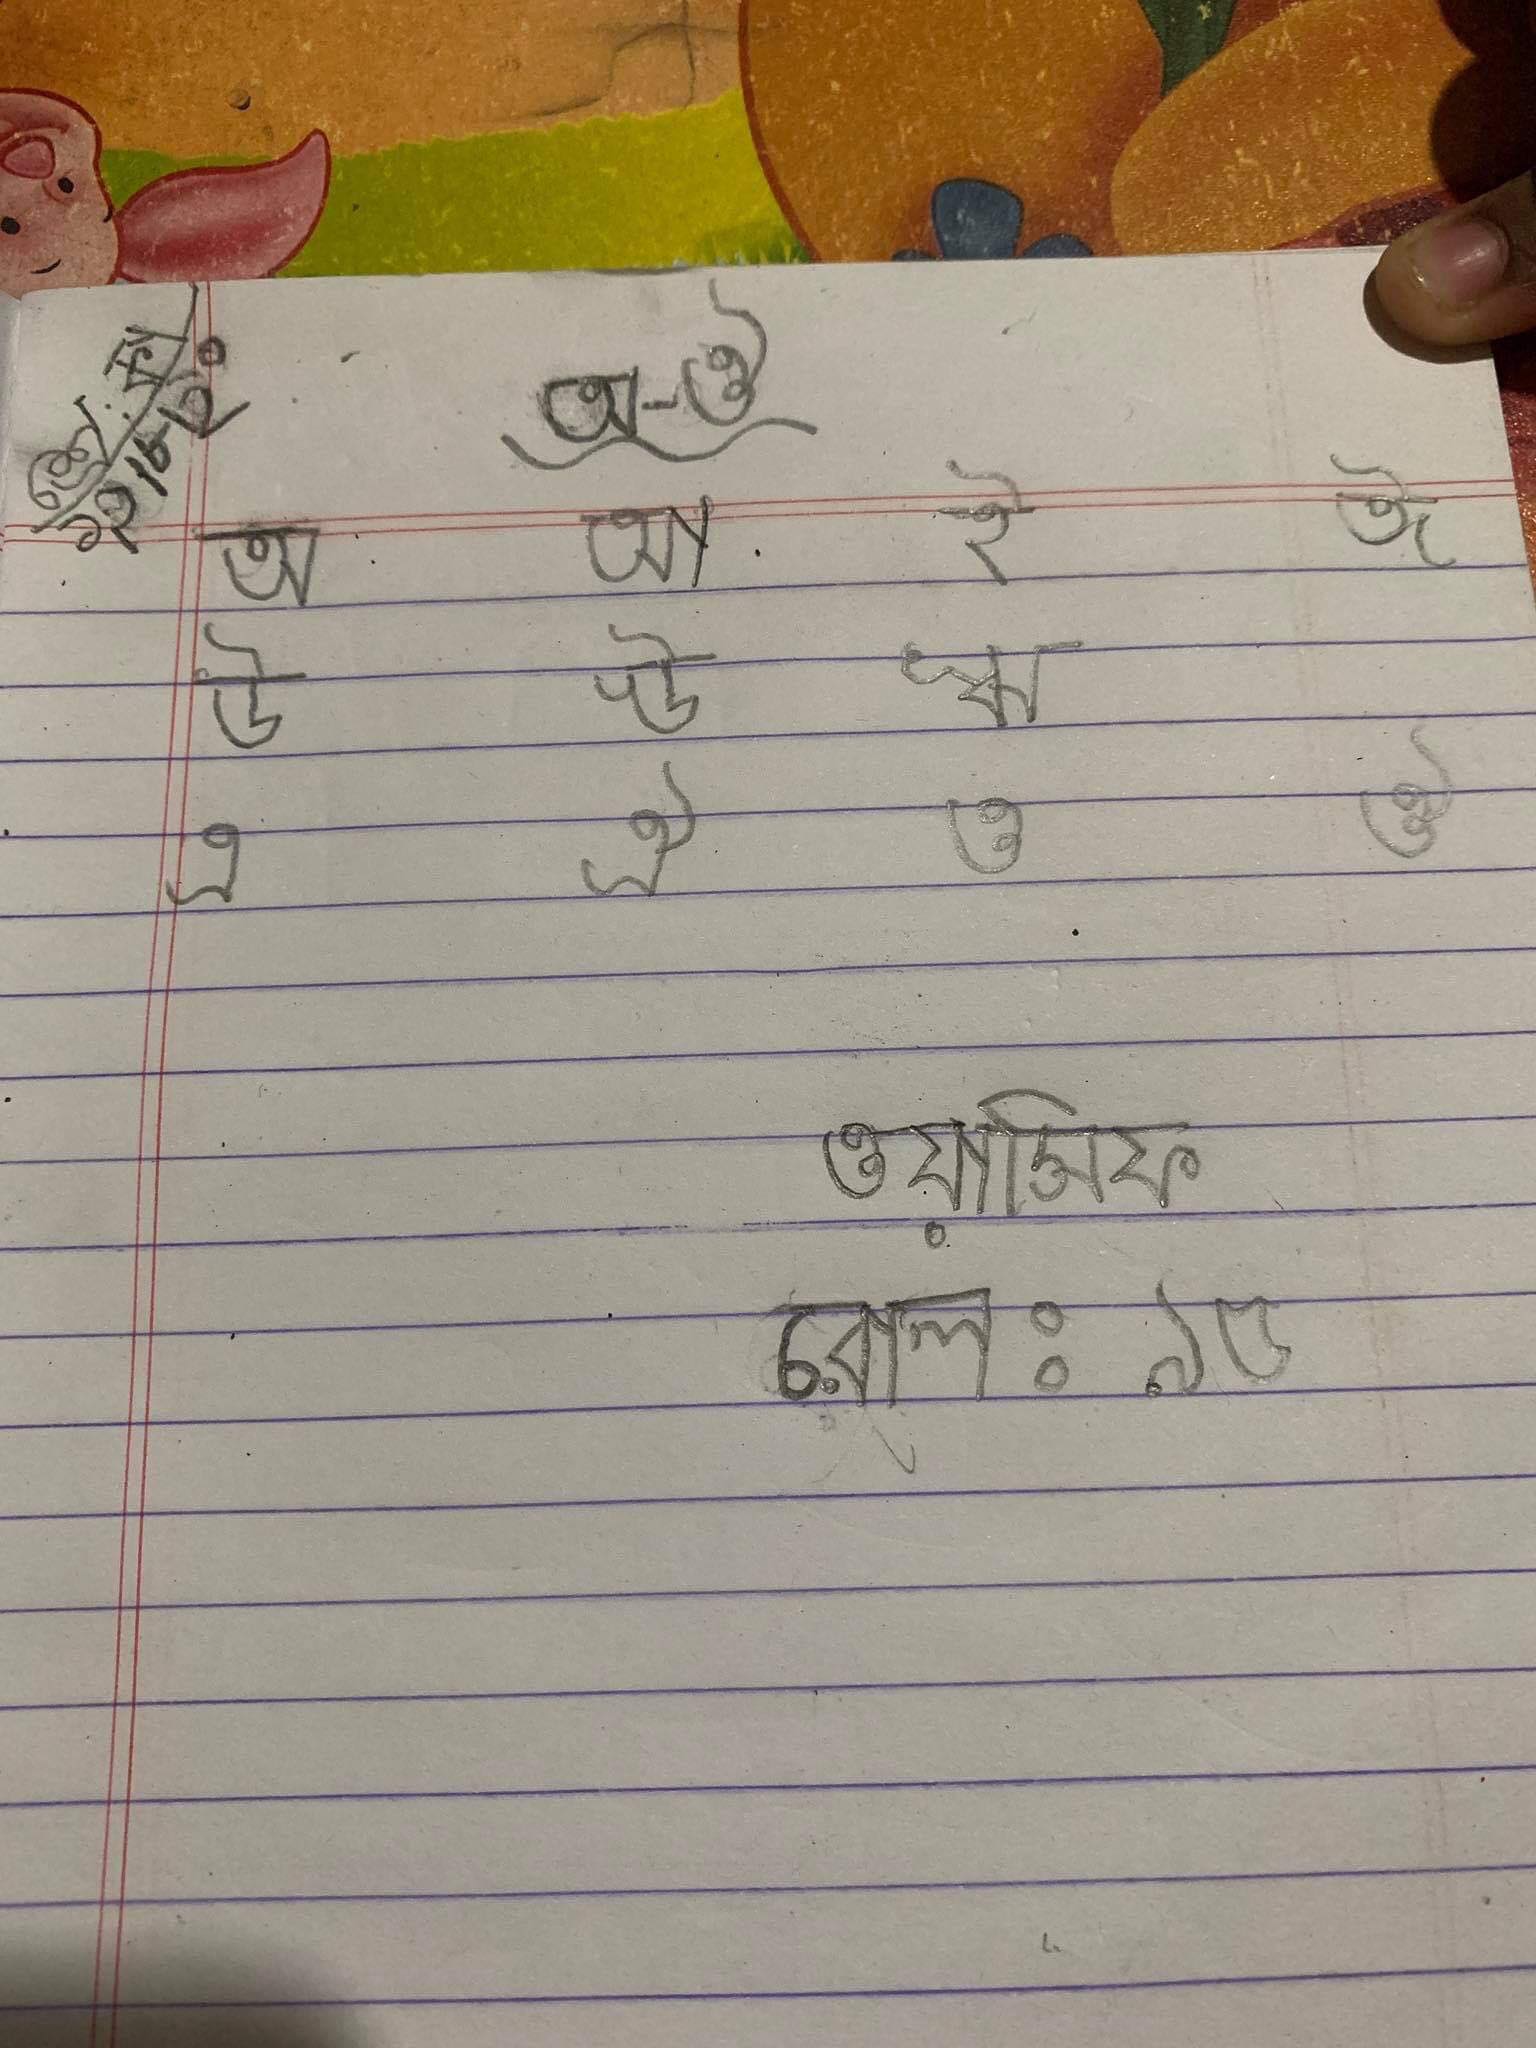 অ-ঔ
অ আ ই ঈ
উ ঊ ঋ
এ ঐ ও ঔ
ওয়াসিফ
রোল ঃ ১৫